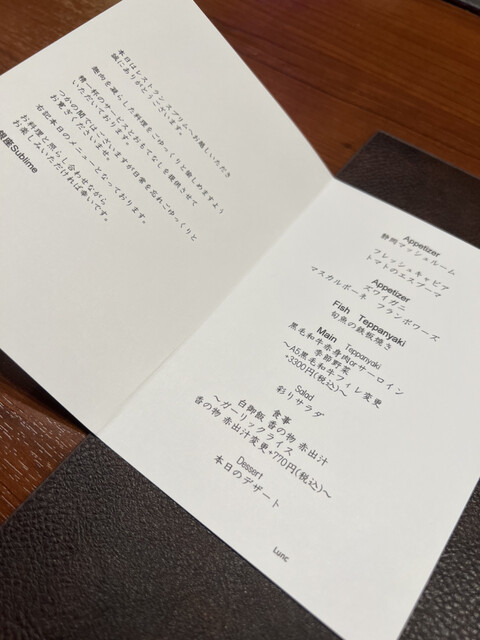 本日はレストランスブリムへお越しいただき
誠にありがとうございます。
趣向を凝らした料理をごゆっくりと愉しめますよう
精一杯のサービスとおもてなしを提供させて
いただいております。
つかの間ではございますが日常を忘れごゆっくりと
お寛ぎくださいませ。
右記本日のメニューとなっております。
お料理と照らし合わせながら
お楽しみいただければ幸いです。
銀座Sublime
Appetizer
静岡マッシュルーム
フレッシュキャビア
トマトのエスプーマ
Appetizer
ズワイガニ
マスカルポーネ フランボワーズ
Fish Teppanyaki
旬魚の鉄板焼き
Main Teppanyaki
黒毛和牛赤身肉orサーロイン
季節野菜
～A5黒毛和牛フィレ変更
+3300円(税込)～
Salad
彩りサラダ
食事
白御飯 香の物 赤出汁
～ガーリックライス
香の物 赤出汁変更+770円(税込)～
Dessert
本日のデザート
Lunc